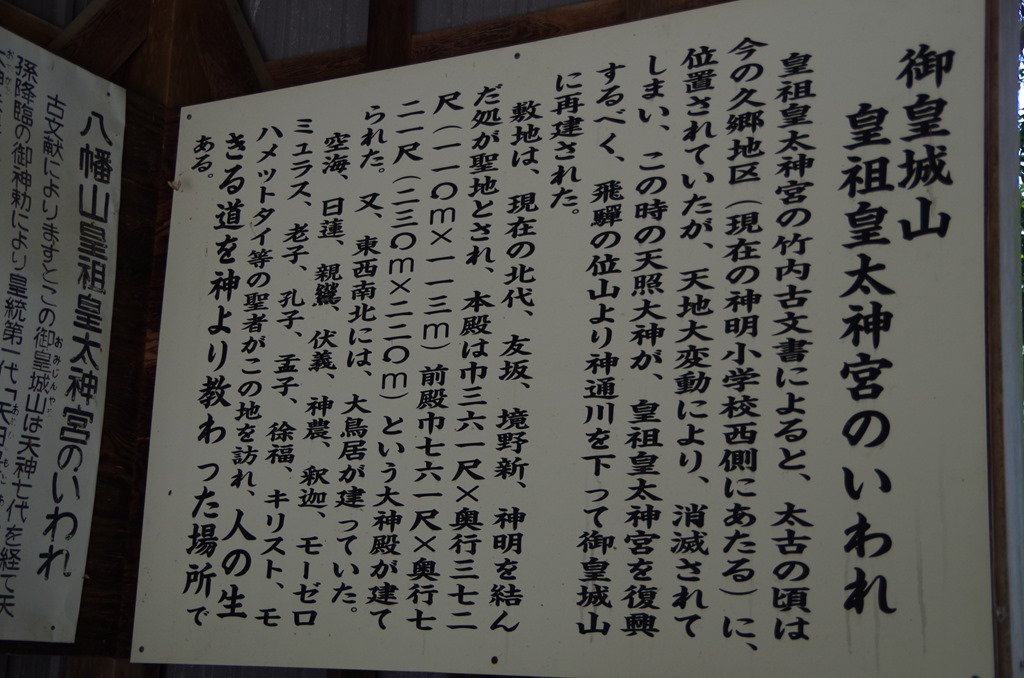 御皇城山
皇祖皇太神宮のいわれ
皇祖皇太神宮の竹内古文書によると、太古の頃は
今の久郷地区（現在の神明小学校西側にあたる）に、
位置されていたが、天地大変動により、消滅されて
しまい、この時の天照大神が、皇祖皇太神宮を復興
するべく、飛騨の位山より神通川を下って御皇城山
に再建された。
敷地は、現在の北代、友坂、境野新、神明を結ん
だ処が聖地とされ、本殿は巾三六一尺×奥行三七二
尺（一一〇m×一一三m）前殿巾七六一尺×奥行七
二一尺（二三〇m×二二〇m）という大神殿が建て
られた。又、東西南北には、大鳥居が建っていた。
空海、日蓮、親鸞、伏義、神農、釈迦、モーゼロ
ミュラス、老子、孔子、孟子、徐福、キリスト、モ
ハメットタイ等の聖者がこの地を訪れ、人の生
きる道を神より教わった場所で
ある。
八幡山皇祖皇太神宮のいわれ
古文献によりますとこの御皇城山は天神七代を経て天
孫降臨の御神勅により皇統第一代「天日